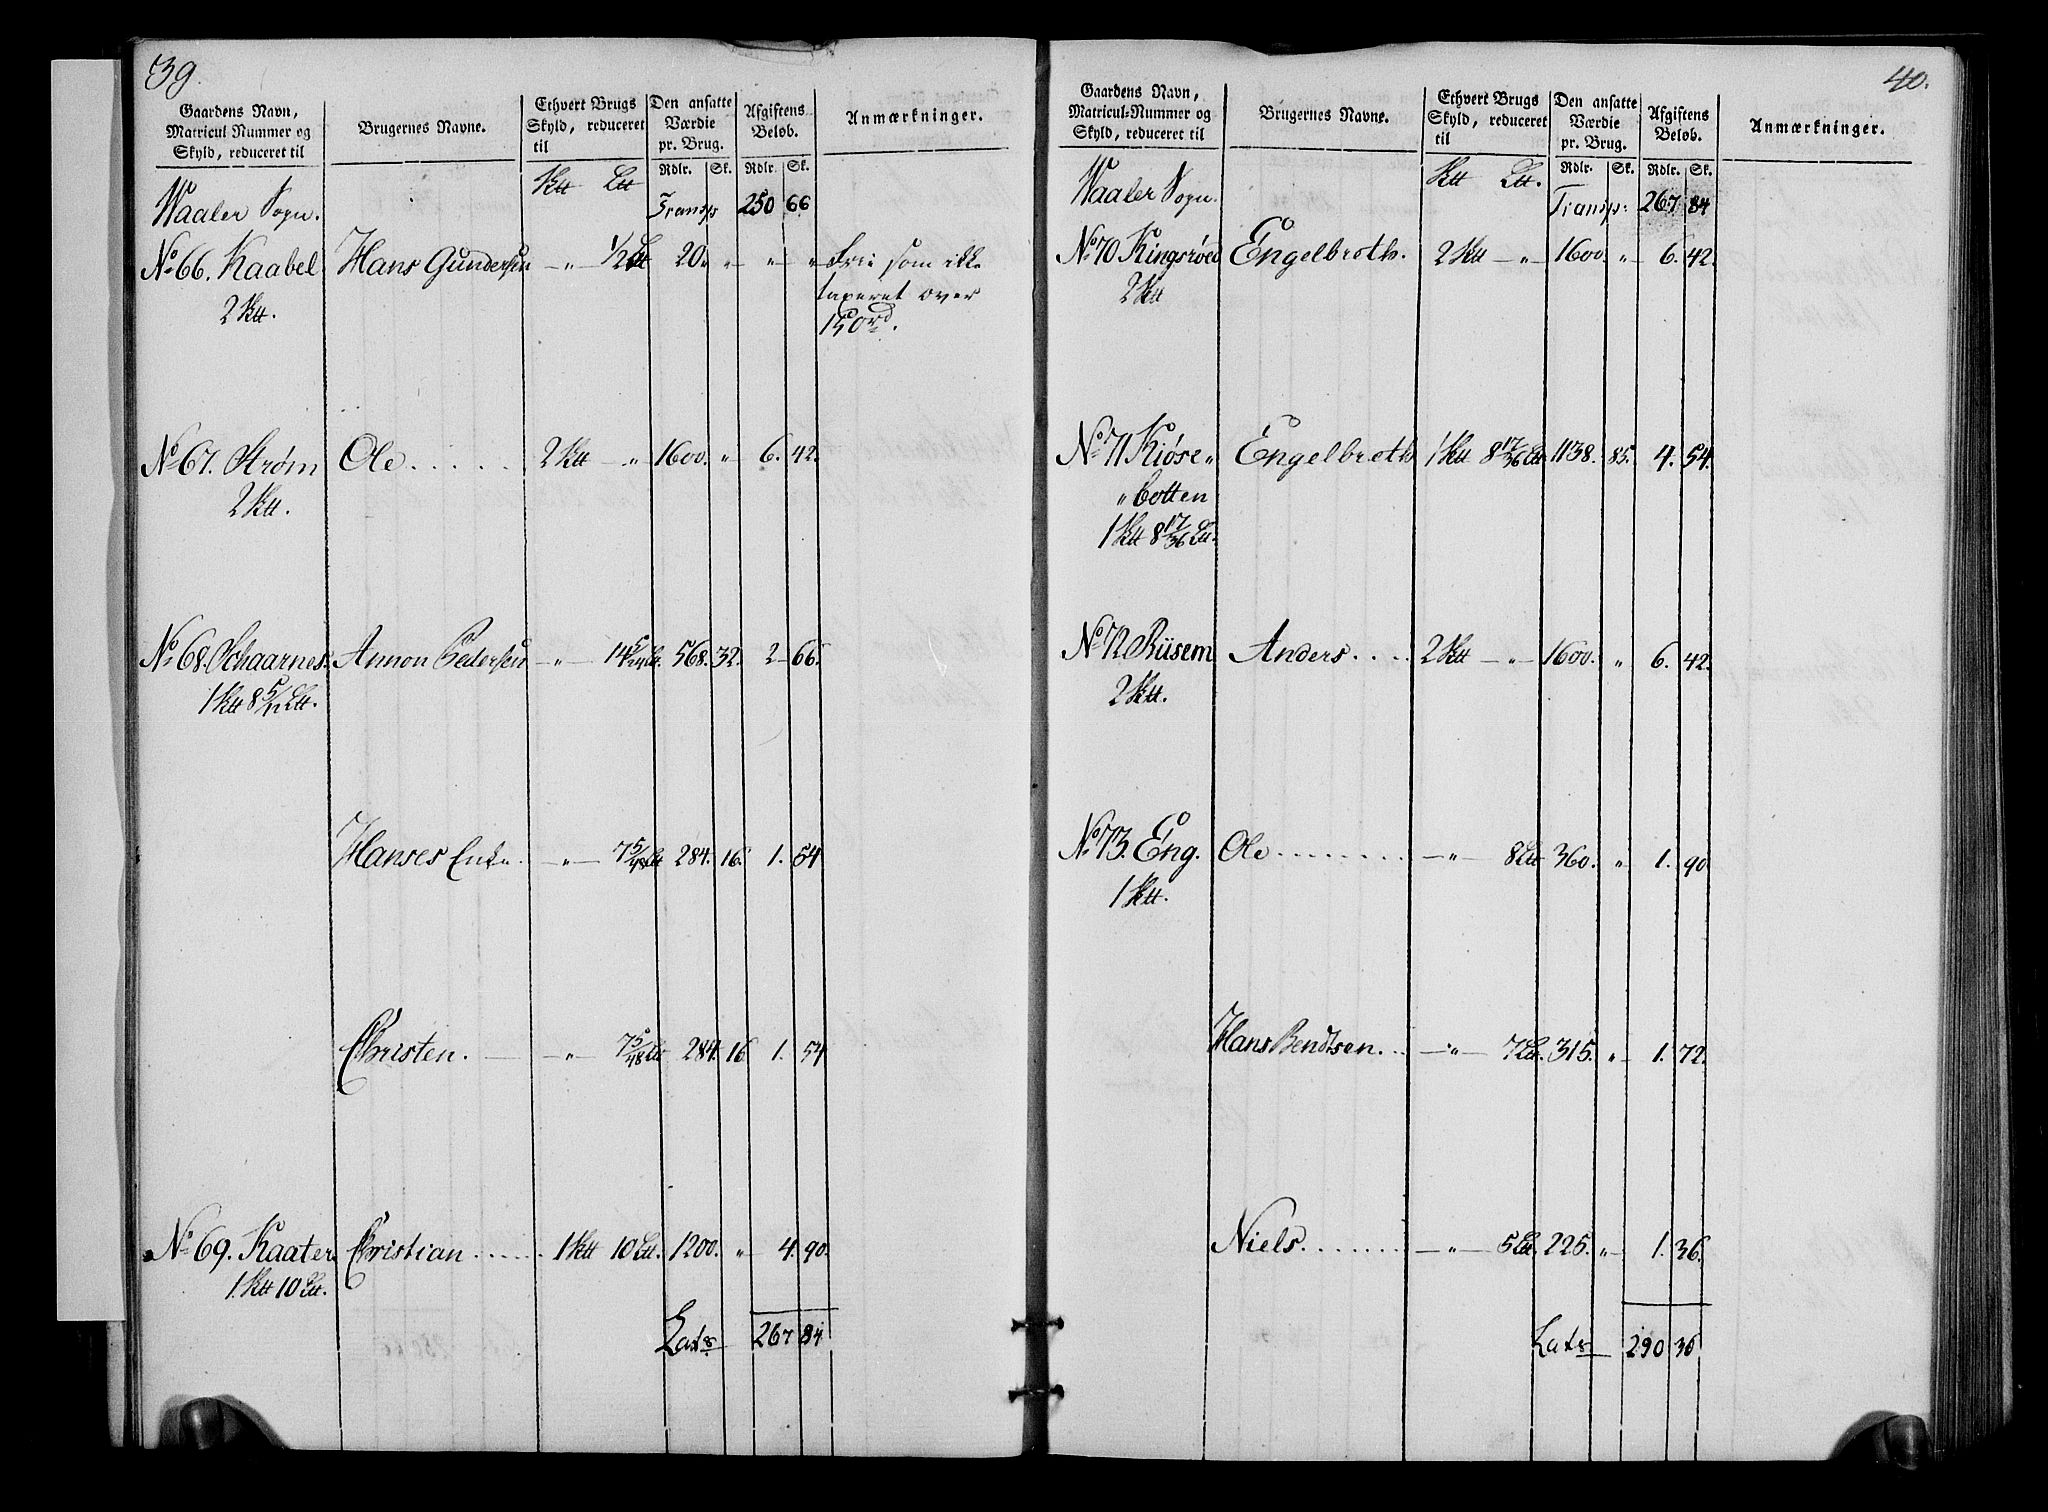 39.
Gaardens Navn, Matricul Nummer og Skyld, reduceret til | Brugernes Navne. | Ethvert Brugs Skyld, reduceret til | Den ansatte Værdie pr. Brug. | Afgiftens Beløb. | Anmærkninger.
Rdlr. Sk. Rdlr. Sk.
Waaler Sogn. Transp 250 66
No 66. Kaabel Hans Gundersen — " — 1/2 20. " " " Fri som ikke
2 taxeret over
150 rd.
No 67. Strøm Ole . . . . . 2 — " 1600. " 6. 42.
2
No 68. Schaarnes Annon Pedersen — " — 14 5/24 568. 32. 2 — 66.
1 8 5/12
Hanses Enke. — " — 7 5/48 284. 16. 1. 54
Christen. — " — 7 5/48 284. 16 1. 54
No 69. Kaater Christian . . . . . . 1 10 1200. " 4. 90.
1 10
Lats 267 84
40.
Gaardens Navn, Matricul-Nummer og Skyld, reduceret til | Brugernes Navne. | Ethvert Brugs Skyld, reduceret til | Den ansatte Værdie pr. Brug. | Afgiftens Beløb. | Anmærkninger.
Rdlr. Sk. Rdlr. Sk.
Waaler Sogn. Transp: 267 84
No 70 Kingsrøed Engelbreth. 2 — " — 1600. " 6. 42.
2
No 71 Kiøse " Engelbreth 1 8 17/36 1138. 85. 4. 54.
" botten
1 8 17/36
No 72 Riisem Anders. . . . 2 — " — 1600. " 6. 42.
2
No 73. Eng. Ole . . . . . . . . — " — 8 360. " 1. 90
1
Hans Bendtsen. . . — " — 7 315. " 1. 72.
Niels. . . . . . . . — " — 5 225. " 1. 36.
Lats 290 36